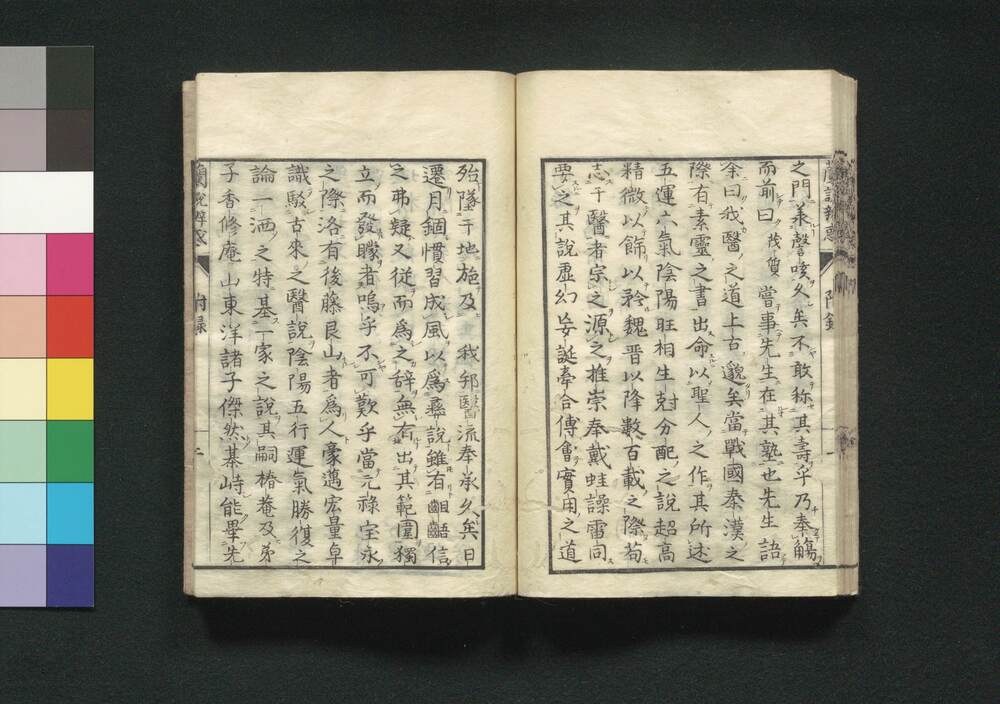 之門業謦咳久矣不敢称其壽乎乃奉觴
而前曰茂質嘗事先生在其塾也先生語
余曰我醫之道上古邈矣當戰國秦漢之
際有素靈之書出命以聖人之作其所述
五運六氣陰陽旺相生尅分配之説超高
精微以飾以矜魏晋以降數百載之際苟
志于醫者宗之源之推崇奉戴蛙譟雷同
要之其説虚幻妄誕牽合傅會實用之道
殆墜于地施及我邦醫流奉承久矣日
遷月錮慣習成風以爲彝說雖有齟齬信
之弗疑又従而爲之辞無有出其範圍獨
立而發矇者嗚乎不可歎乎當元祿宝永
之際洛有後藤艮山者爲人豪邁宏量卓
識駁古來之醫說陰陽五行運氣勝復之
論一洒之特基一家之說其嗣椿菴及弟
子香修庵山東洋諸子傑然棊峙能畢先
蘭說弁惑
附録
二